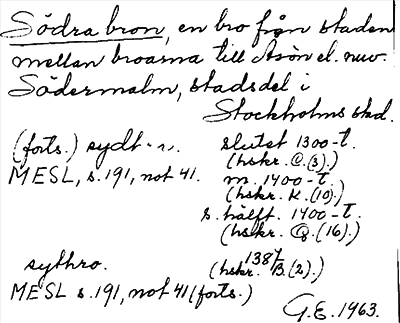 Södra bron, en bro från staden
mellan broarna till Åsön el. nuv.
Södermalm, stadsdel i
Stockholms stad.
(forts.) sydt - n. slutet 1300-t.
(hskr. C.(3).)
MESL, s.191, not 41. m. 1400-t.
(hskr. K.(10).)
s. hälft. 1400-t.
(hskr. Q.(16).)
sythro. 1387
(hskr. B.(2).)
MESL s.191, not 41 (forts.)
G.E. 1963.